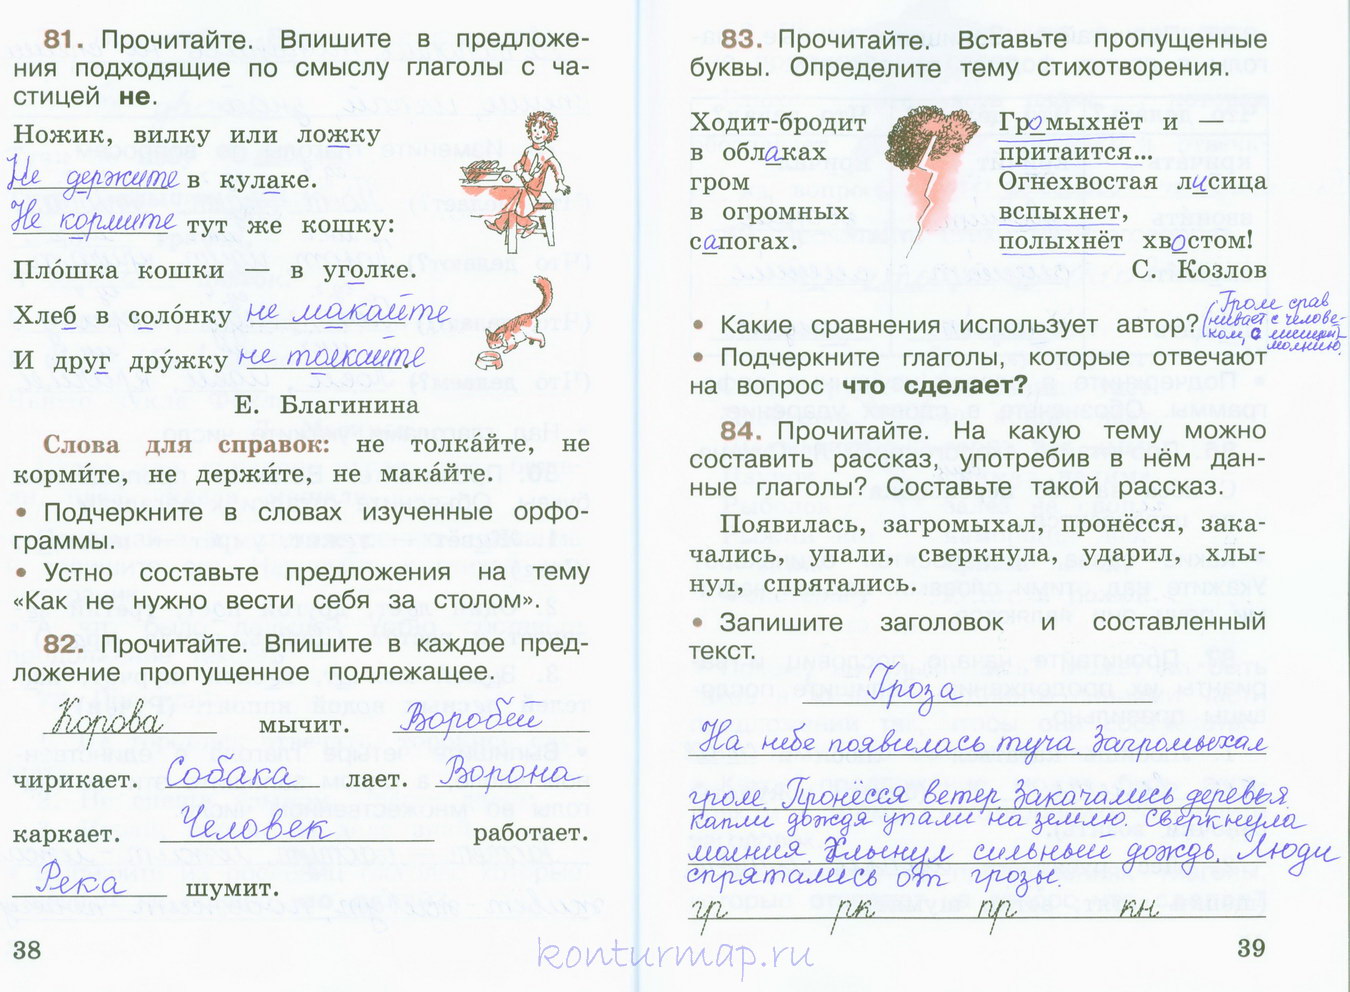 81. Прочитайте. Впишите в предложе-
ния подходящие по смыслу глаголы с ча-
стицей не.
Ножик, вилку или ложку
Не держите в кулаке.
Не кормите тут же кошку:
Пло́шка кошки — в уголке.
Хлеб в соло́нку не макайте
И друг дру́жку не толкайте.
Е. Благинина
Слова для справок: не толка́йте, не
корми́те, не держи́те, не мака́йте.
• Подчеркните в словах изученные орфо-
граммы.
• Устно составьте предложения на тему
«Как не нужно вести себя за столом».
82. Прочитайте. Впишите в каждое пред-
ложение пропущенное подлежащее.
Корова мычит. Воробей
чирикает. Собака лает. Ворона
каркает. Человек работает.
Река шумит.
38
83. Прочитайте. Вставьте пропущенные
буквы. Определите тему стихотворения.
Ходит-бродит
в облаках
гром
в огромных
сапогах.
Громыхнёт и
притаится...
Огнехвостая лисица
вспыхнет,
полыхнёт хвостом!
С. Козлов
• Какие сравнения использует автор? (Гром срав
нивает с челове-
ком, с лисицей-
молнию.
• Подчеркните глаголы, которые отвечают
на вопрос что сделает?
84. Прочитайте. На какую тему можно
составить рассказ, употребив в нём дан-
ные глаголы? Составьте такой рассказ.
Появилась, загромыхал, пронёсся, зака-
чались, упали, сверкнула, ударил, хлы-
нул, спрятались.
• Запишите заголовок и составленный
текст.
Гроза
На небе появилась туча. Загромыхал
гром. Пронёсся ветер. Закачались деревья.
капли дождя упали на землю. Сверкнула
молния. Хлынул сильный дождь. Люди
спрятались от грозы.
гр рк пр кн
39
konturmap.ru